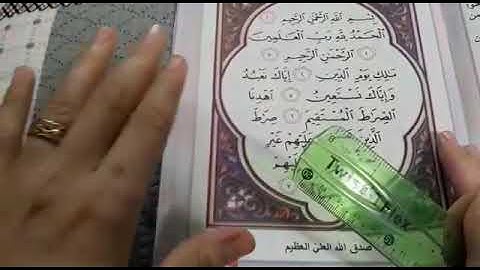 بِسْمِ اللَّهِ الرَّحْمَٰنِ الرَّحِيمِ ١
الْحَمْدُ لِلَّهِ رَبِّ الْعَٰلَمِينَ
٢ الرَّحْمَٰنِ الرَّحِيمِ ٣
مَٰلِكِ يَوْمِ الدِّينِ ٤ إِيَّاكَ نَعْبُدُ
وَإِيَّاكَ نَسْتَعِينُ ٥ اهْدِنَا
الصِّرَٰطَ الْمُسْتَقِيمَ ٦ صِرَٰطَ
الَّذِينَ عَلَيْهِمْ غَيْرِ
Twist Flex
صدق الله العلي العظيم